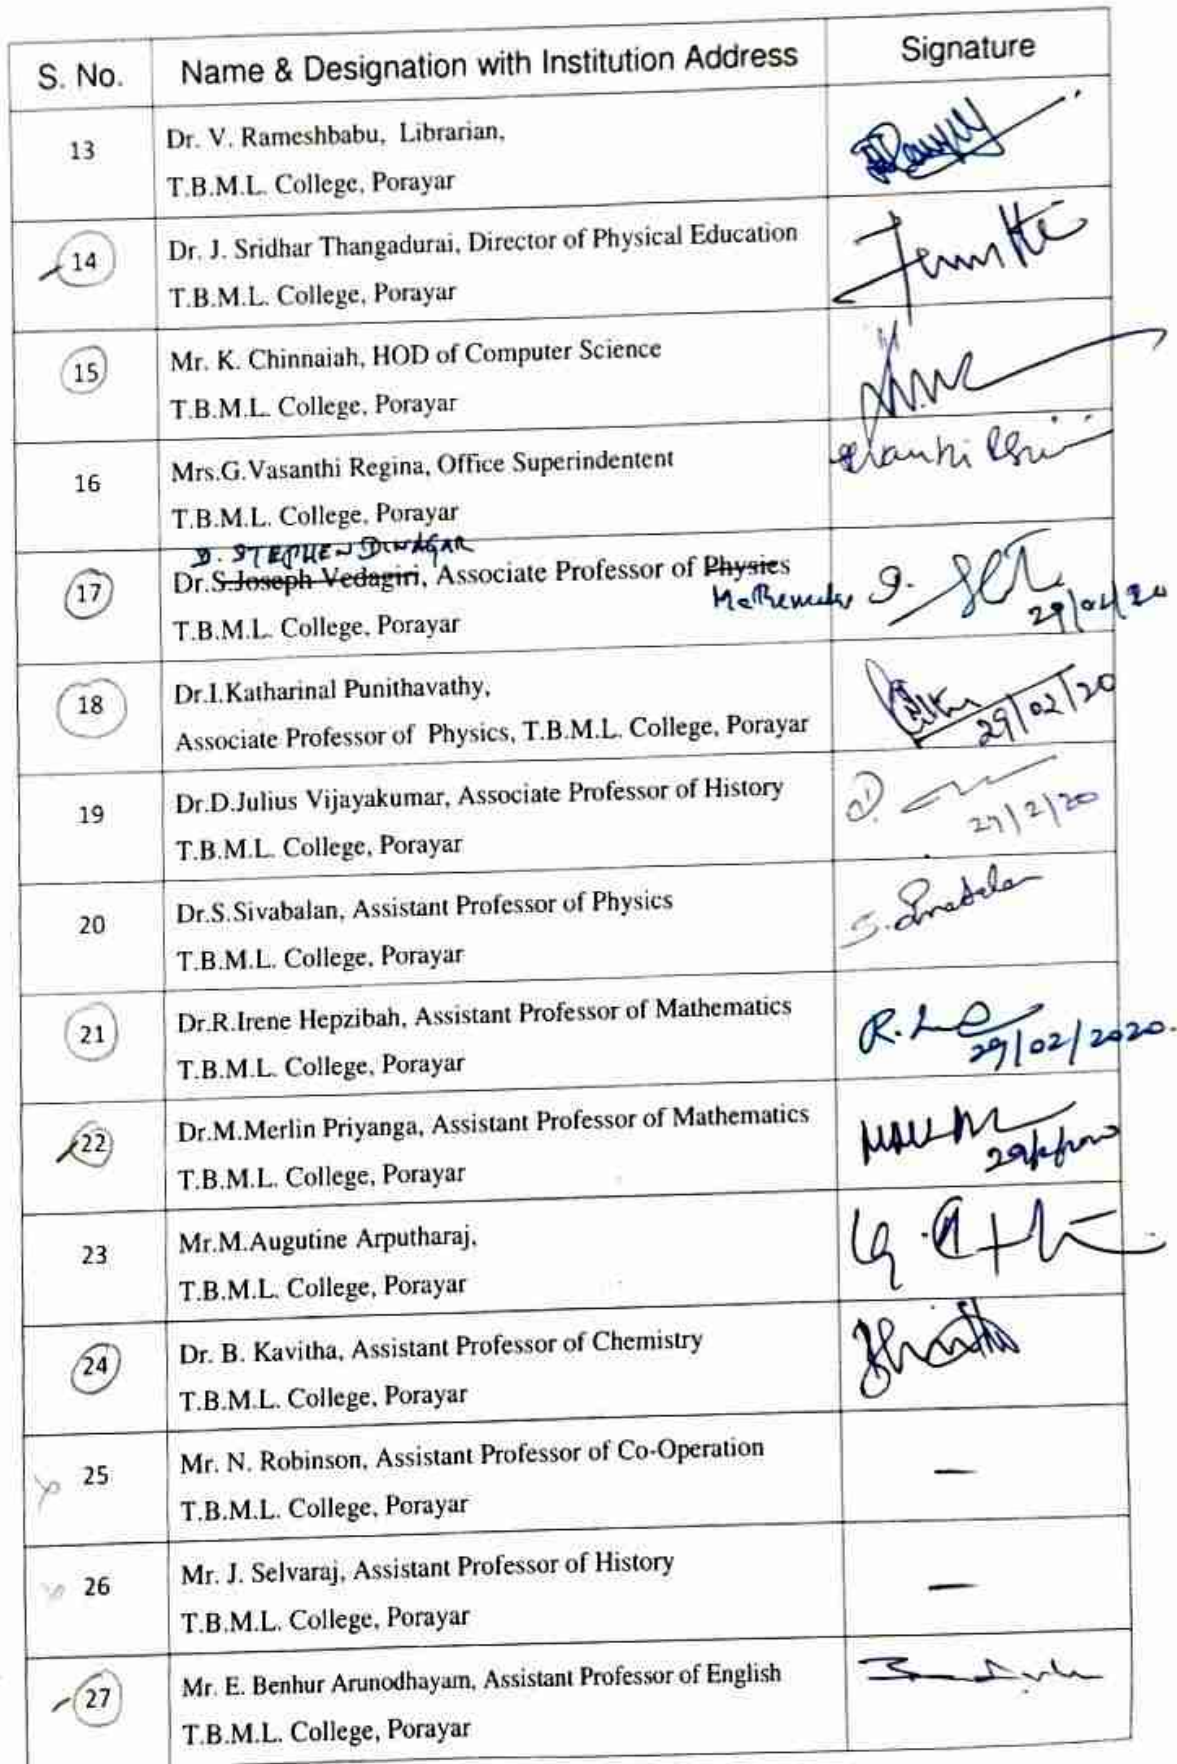 S. No. Name & Designation with Institution Address Signature
13 Dr. V. Rameshbabu, Librarian,
T.B.M.L. College, Porayar
14 Dr. J. Sridhar Thangadurai, Director of Physical Education
T.B.M.L. College, Porayar
15 Mr. K. Chinnaiah, HOD of Computer Science
T.B.M.L. College, Porayar
16 Mrs.G.Vasanthi Regina, Office Superindentent
T.B.M.L. College, Porayar
D. STEPHEN DINAGAR
17 Dr.S.Joseph Vedagiri, Associate Professor of Physics
Mathematics
T.B.M.L. College, Porayar
18 Dr.I.Katharinal Punithavathy,
29/02/20
Associate Professor of Physics, T.B.M.L. College, Porayar
19 Dr.D.Julius Vijayakumar, Associate Professor of History
T.B.M.L. College, Porayar
20 Dr.S.Sivabalan, Assistant Professor of Physics
T.B.M.L. College, Porayar
21 Dr.R.Irene Hepzibah, Assistant Professor of Mathematics
29/02/2020.
T.B.M.L. College, Porayar
22 Dr.M.Merlin Priyanga, Assistant Professor of Mathematics
T.B.M.L. College, Porayar
23 Mr.M.Augutine Arputharaj,
T.B.M.L. College, Porayar
24 Dr. B. Kavitha, Assistant Professor of Chemistry
T.B.M.L. College, Porayar
25 Mr. N. Robinson, Assistant Professor of Co-Operation —
T.B.M.L. College, Porayar
26 Mr. J. Selvaraj, Assistant Professor of History —
T.B.M.L. College, Porayar
27 Mr. E. Benhur Arunodhayam, Assistant Professor of English
T.B.M.L. College, Porayar